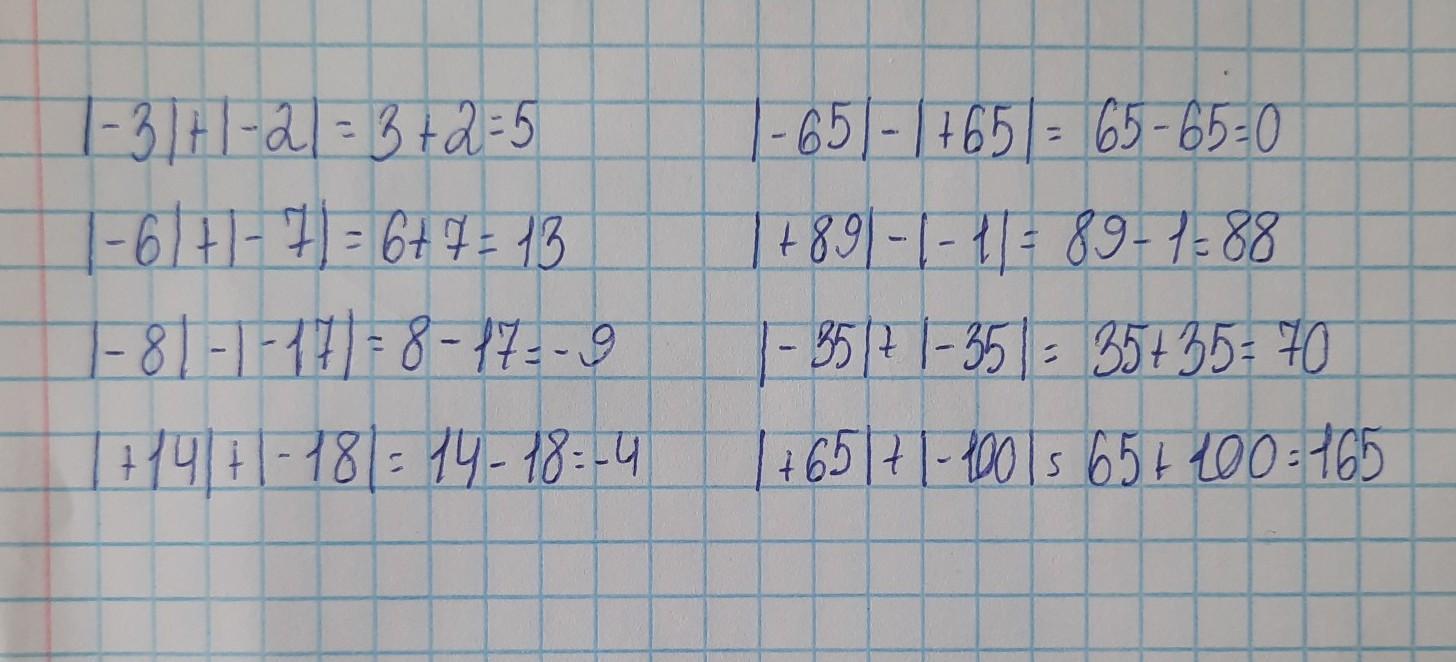 |-3|+|-2| = 3+2=5
|-6|+|-7| = 6+7=13
|-8|-|-17| = 8-17=-9
|+14|+|-18| = 14-18=-4
|-65|-|+65| = 65-65=0
|+89|-|-1| = 89-1=88
|-35|+|-35| = 35+35=70
|+65|+|-100| = 65+100=165